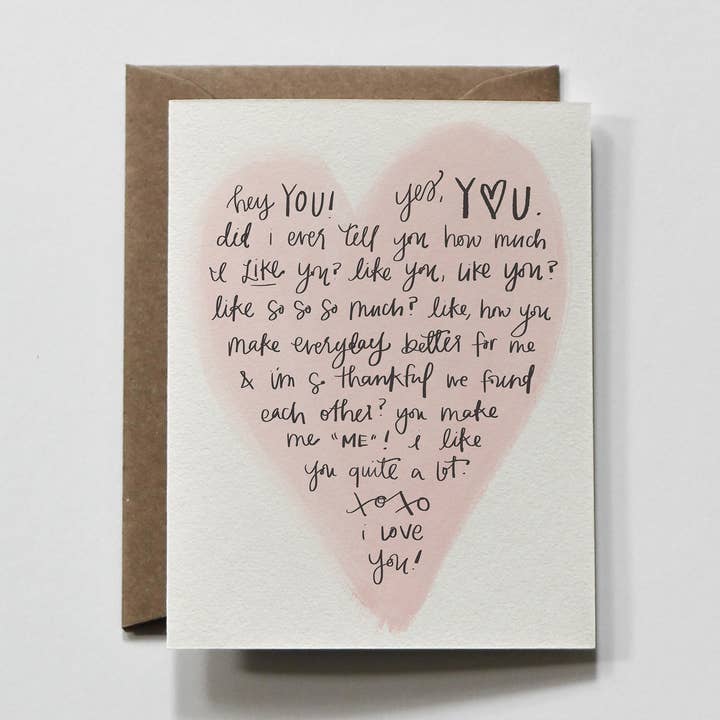 hey YOU! yes, Y♡U.
did i ever tell you how much
i LIKE you? like you, like you?
like so so so much? like, how you
make everyday better for me
& i'm so thankful we found
each other? you make
me "ME"! i like
you quite a lot.
xoxo
i love
you!